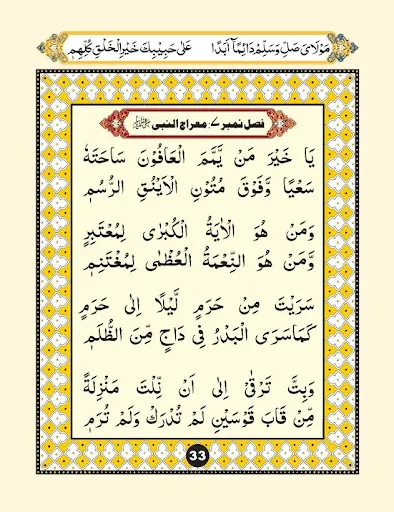 مَوْلَایَ صَلِّ وَسَلِّمْ دَآئِمًا اَبَدًا عَلٰی حَبِیْبِكَ خَیْرِ الْخَلْقِ كُلِّهِمٖ
فصل نمبر ۷: معراج النبی ﷺ
یَا خَیْرَ مَنْ یَّمَّمَ الْعَافُوْنَ سَاحَتَهٗ
سَعْیًا وَّفَوْقَ مُتُوْنِ الْاَیْنُقِ الرُّسُمٖ
وَمَنْ هُوَ الْاٰیَةُ الْكُبْرٰی لِمُعْتَبِرٍ
وَّمَنْ هُوَ النِّعْمَةُ الْعُظْمٰی لِمُغْتَنِمٖ
سَرَیْتَ مِنْ حَرَمٍ لَّیْلًا اِلٰی حَرَمٍ
كَمَا سَرَی الْبَدْرُ فِیْ دَاجٍ مِّنَ الظُّلَمٖ
وَبِتَّ تَرْقٰی اِلٰی اَنْ نِّلْتَ مَنْزِلَةً
مِّنْ قَابَ قَوْسَیْنِ لَمْ تُدْرَكْ وَلَمْ تُرَمٖ
33